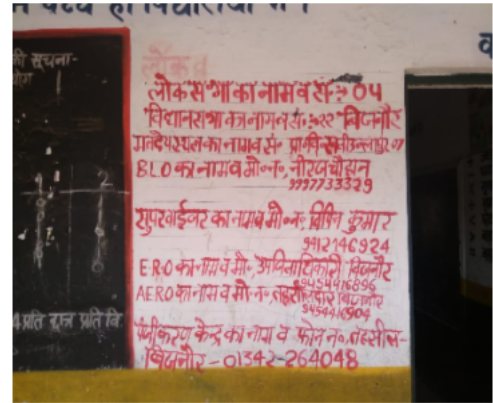 की सूचना-
लोकसभा का नाम व सं॰:- 04
विधानसभा का नाम व सं॰:-22 बिजनौर
मतदेय स्थल का नाम व सं॰ प्रा॰वि॰
BLO का नाम व मो॰न॰, नीरज चौहान
9997733329
सुपरवाईजर का नाम व मो॰न॰, विपिन कुमार
9412146924
E.R.O का नाम व मो॰, उपजिलाधिकारी बिजनौर
9454416896
AERO का नाम व मो॰न॰, तहसीलदार बिजनौर
9454416904
पंजीकरण केन्द्र का नाम व फोन न॰, तहसील-
बिजनौर-01342-264048
1 2
प्रति छात्र प्रति दि